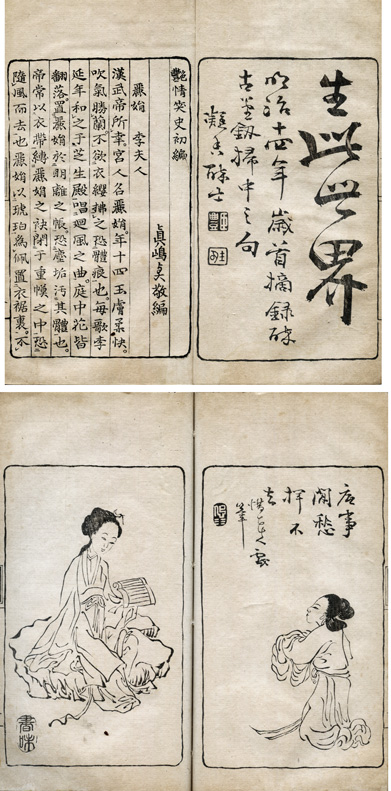 生此世界
明治十四年歳首摘録醉
古堂釼掃中之句
艷情笑史初編
眞嶋貞敬編
麗娟　李夫人
漢武帝所幸宮人名麗娟。年十四玉膚柔快。
吹氣勝蘭不欲衣纓拂之恐體痕也。每歌李
延年和之于芝生殿唱迴風之曲。庭中花皆
翻落置麗娟於明離之帳恐塵垢汚其體也。
帝常以衣帶縛麗娟之袂閉于重幙之中恐
隨風而去也麗娟以琥珀為佩置衣裾裏。不
閑愁
揮不
去
書味